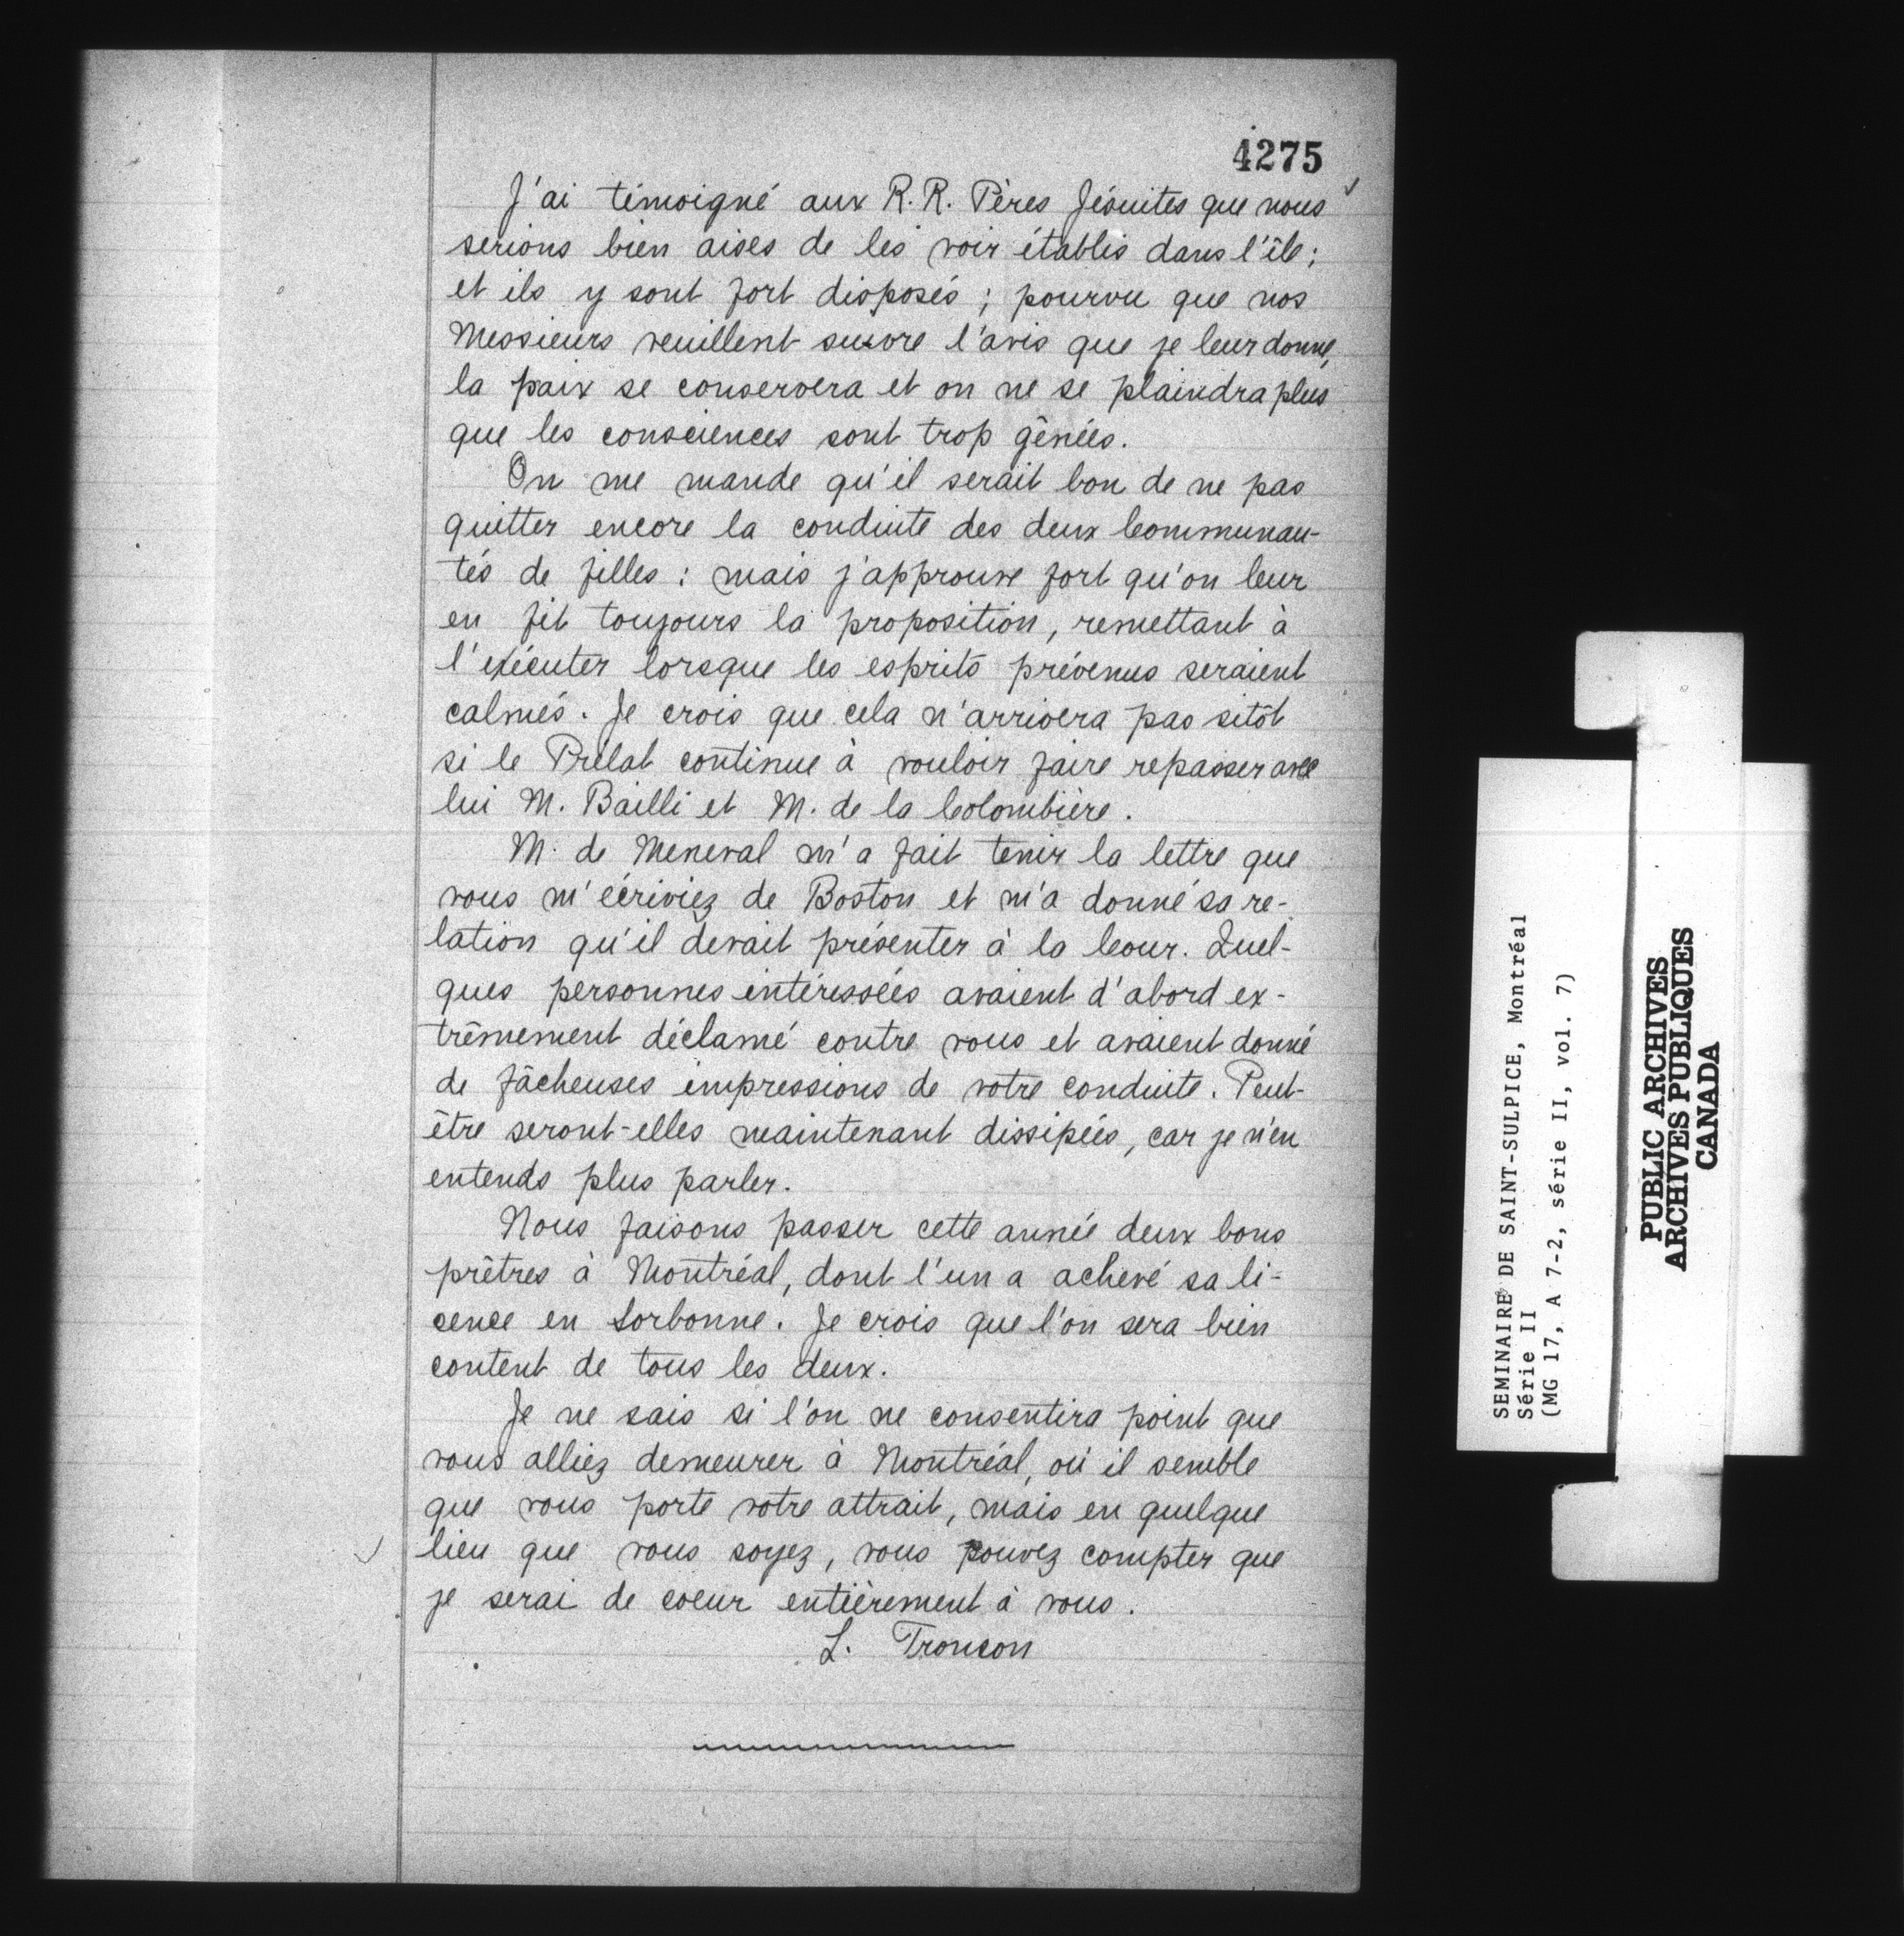 4275
J'ai témoigné aux R. R. Pères Jésuites que nous
serions bien aises de les voir établis dans l'île;
et ils y sont fort disposés; pourvu que nos
Messieurs veuillent suivre l'avis que je leur donne,
la paix se conservera et on ne se plaindra plus
que les consciences sont trop gênées.
On me mande qu'il serait bon de ne pas
quitter encore la conduite des deux Communau-
tés de filles: mais j'approuve fort qu'on leur
en fit toujours la proposition, remettant à
l'exécuter lorsque les esprits prévenus seraient
calmés. Je crois que cela n'arrivera pas sitôt
si le Prélat continue à vouloir faire repasser avec
lui M. Bailli et M. de la Colombière.
M. de Meneval m'a fait tenir la lettre que
vous m'écriviez de Boston et m'a donné sa re-
lation qu'il devait présenter à la Cour. Quel-
ques personnes intéressées avaient d'abord ex-
trêmement déclamé contre vous et avaient donné
de fâcheuses impressions de votre conduite. Peut-
être seront-elles maintenant dissipées, car je n'en
entends plus parler.
Nous faisons passer cette année deux bons
prêtres à Montréal, dont l'un a achevé sa li-
cence en Sorbonne. Je crois que l'on sera bien
content de tous les deux.
Je ne sais si l'on ne consentira point que
vous alliez demeurer à Montréal, où il semble
que vous porte votre attrait, mais en quelque
lieu que vous soyez, vous pouvez compter que
je serai de coeur entièrement à vous.
L. Tronson
SEMINAIRE DE SAINT-SULPICE, Montréal
Série II
(MG 17, A 7-2, série II, vol. 7)
PUBLIC ARCHIVES
ARCHIVES PUBLIQUES
CANADA